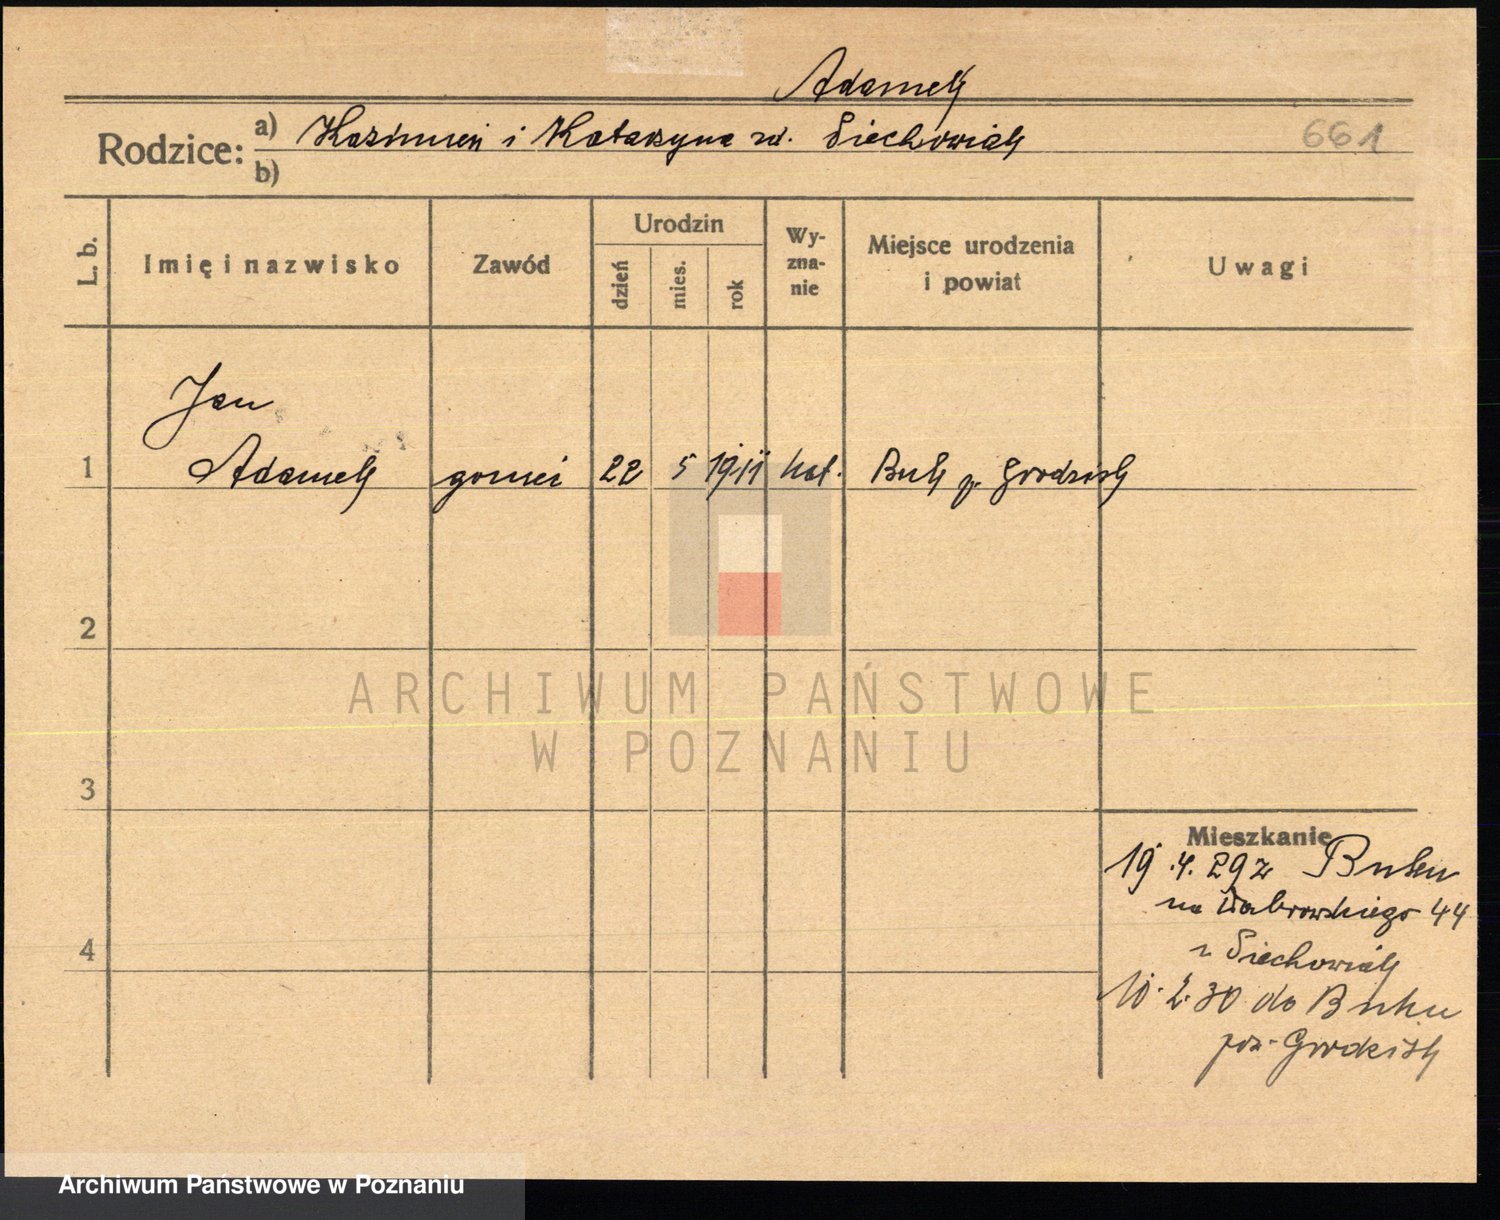 Adamek
Rodzice: a) Kazimierz i Katarzyna zd. Siechowiak 661
b)
L. b. Imię i nazwisko Zawód Urodzin dzień mies. rok Wyznanie Miejsce urodzenia i powiat Uwagi
Jan
1 Adamek 22 5 1911 kat. Buk p. Grodzisk
2
ARCHIWUM PAŃSTWOWE
W POZNANIU
3
Mieszkanie
19.4.29 z Buku
na Dabrowskiego 44
Siechowiak
4
10.2.30 do Buku
pow. Grodzisk
Archiwum Państwowe w Poznaniu